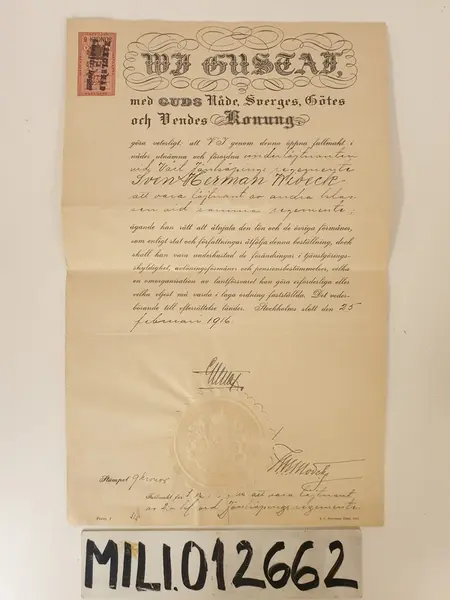 WI GUSTAF,
med GUDS Nåde, Sverges, Götes
och Vendes Konung
göra veterligt, att VI genom denna öppna fullmakt i
nåder utnämna och förordna underlöjtnanten
vid Vårt Jönköpings regemente
Sven Herman Wibeck
att vara löjtnant av andra klas-
sen vid samma regemente,
ägande han rätt att åtnjuta den lön och de övriga förmåner,
som enligt stat och författningar åtfölja denna beställning, dock
skall han vara underkastad de förändringar i tjänstgörings-
skyldighet, avlöningsförmåner och pensionsbestämmelser, vilka
en omorganisation av lantförsvaret kan göra erforderliga eller
vilka eljest må varda i laga ordning fastställda. Det veder-
börande till efterrättelse länder. Stockholms slott den 25
februari 1916.
Gustaf
Stämpel 9 kronor
Fullmakt för att vara löjtnant
vid Jönköpings regemente
MILI.012662